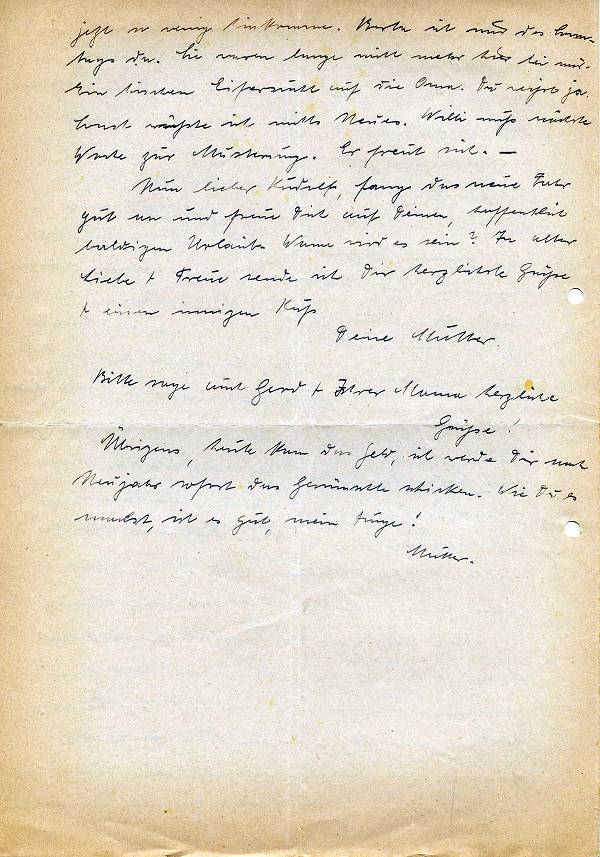 jetzt so wenig hinkomme. Berta ist nur des Sonn-
tags da. Sie waren lange nicht mehr hier bei uns.
Ein bischen Eifersucht auf die Oma. Du weißt ja.
Sonst wüßte ich nichts Neues. Willi muß nächste
Woche zur Musterung. Er freut sich. —
Nun lieber Rudolf, fang das neue Jahr
gut an und freue Dich auf Deinen, hoffentlich
baldigen Urlaub. Wann wird es sein? In alter
Liebe + Treue sende ich Dir herzlichste Grüße
+ einen innigen Kuß
Deine Mutter.
Bitte sage auch Gerd + Ihrer Mama herzliche
Grüße!
Übrigens, heute kam das Geld, ich werde Dir nach
Neujahr sofort das Gewünschte schicken. Wie Du es
machst, ist es gut, mein Junge!
Mutter.